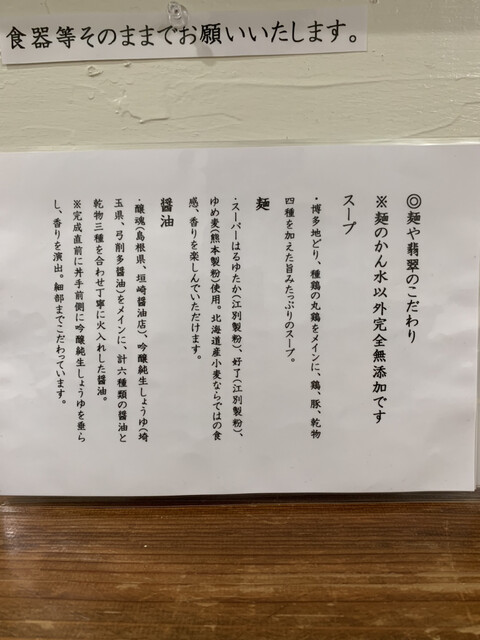 食器等そのままでお願いいたします。
◎麺や翡翠のこだわり
※麺のかん水以外完全無添加です
スープ
・博多地どり、種鶏の丸鶏をメインに、鶏、豚、乾物
四種を加えた旨みたっぷりのスープ。
麺
・スーパーはるゆたか(江別製粉)、好了(江別製粉)、
ゆめ麦(熊本製粉)使用。北海道産小麦ならではの食
感、香りを楽しんでいただけます。
醤油
・醸魂(島根県、垣崎醤油店)、吟醸純生しょうゆ(埼
玉県、弓削多醤油)をメインに、計六種類の醤油と
乾物三種を合わせ丁寧に火入れした醤油。
※完成直前に丼手前側に吟醸純生しょうゆを垂ら
し、香りを演出。細部までこだわっています。